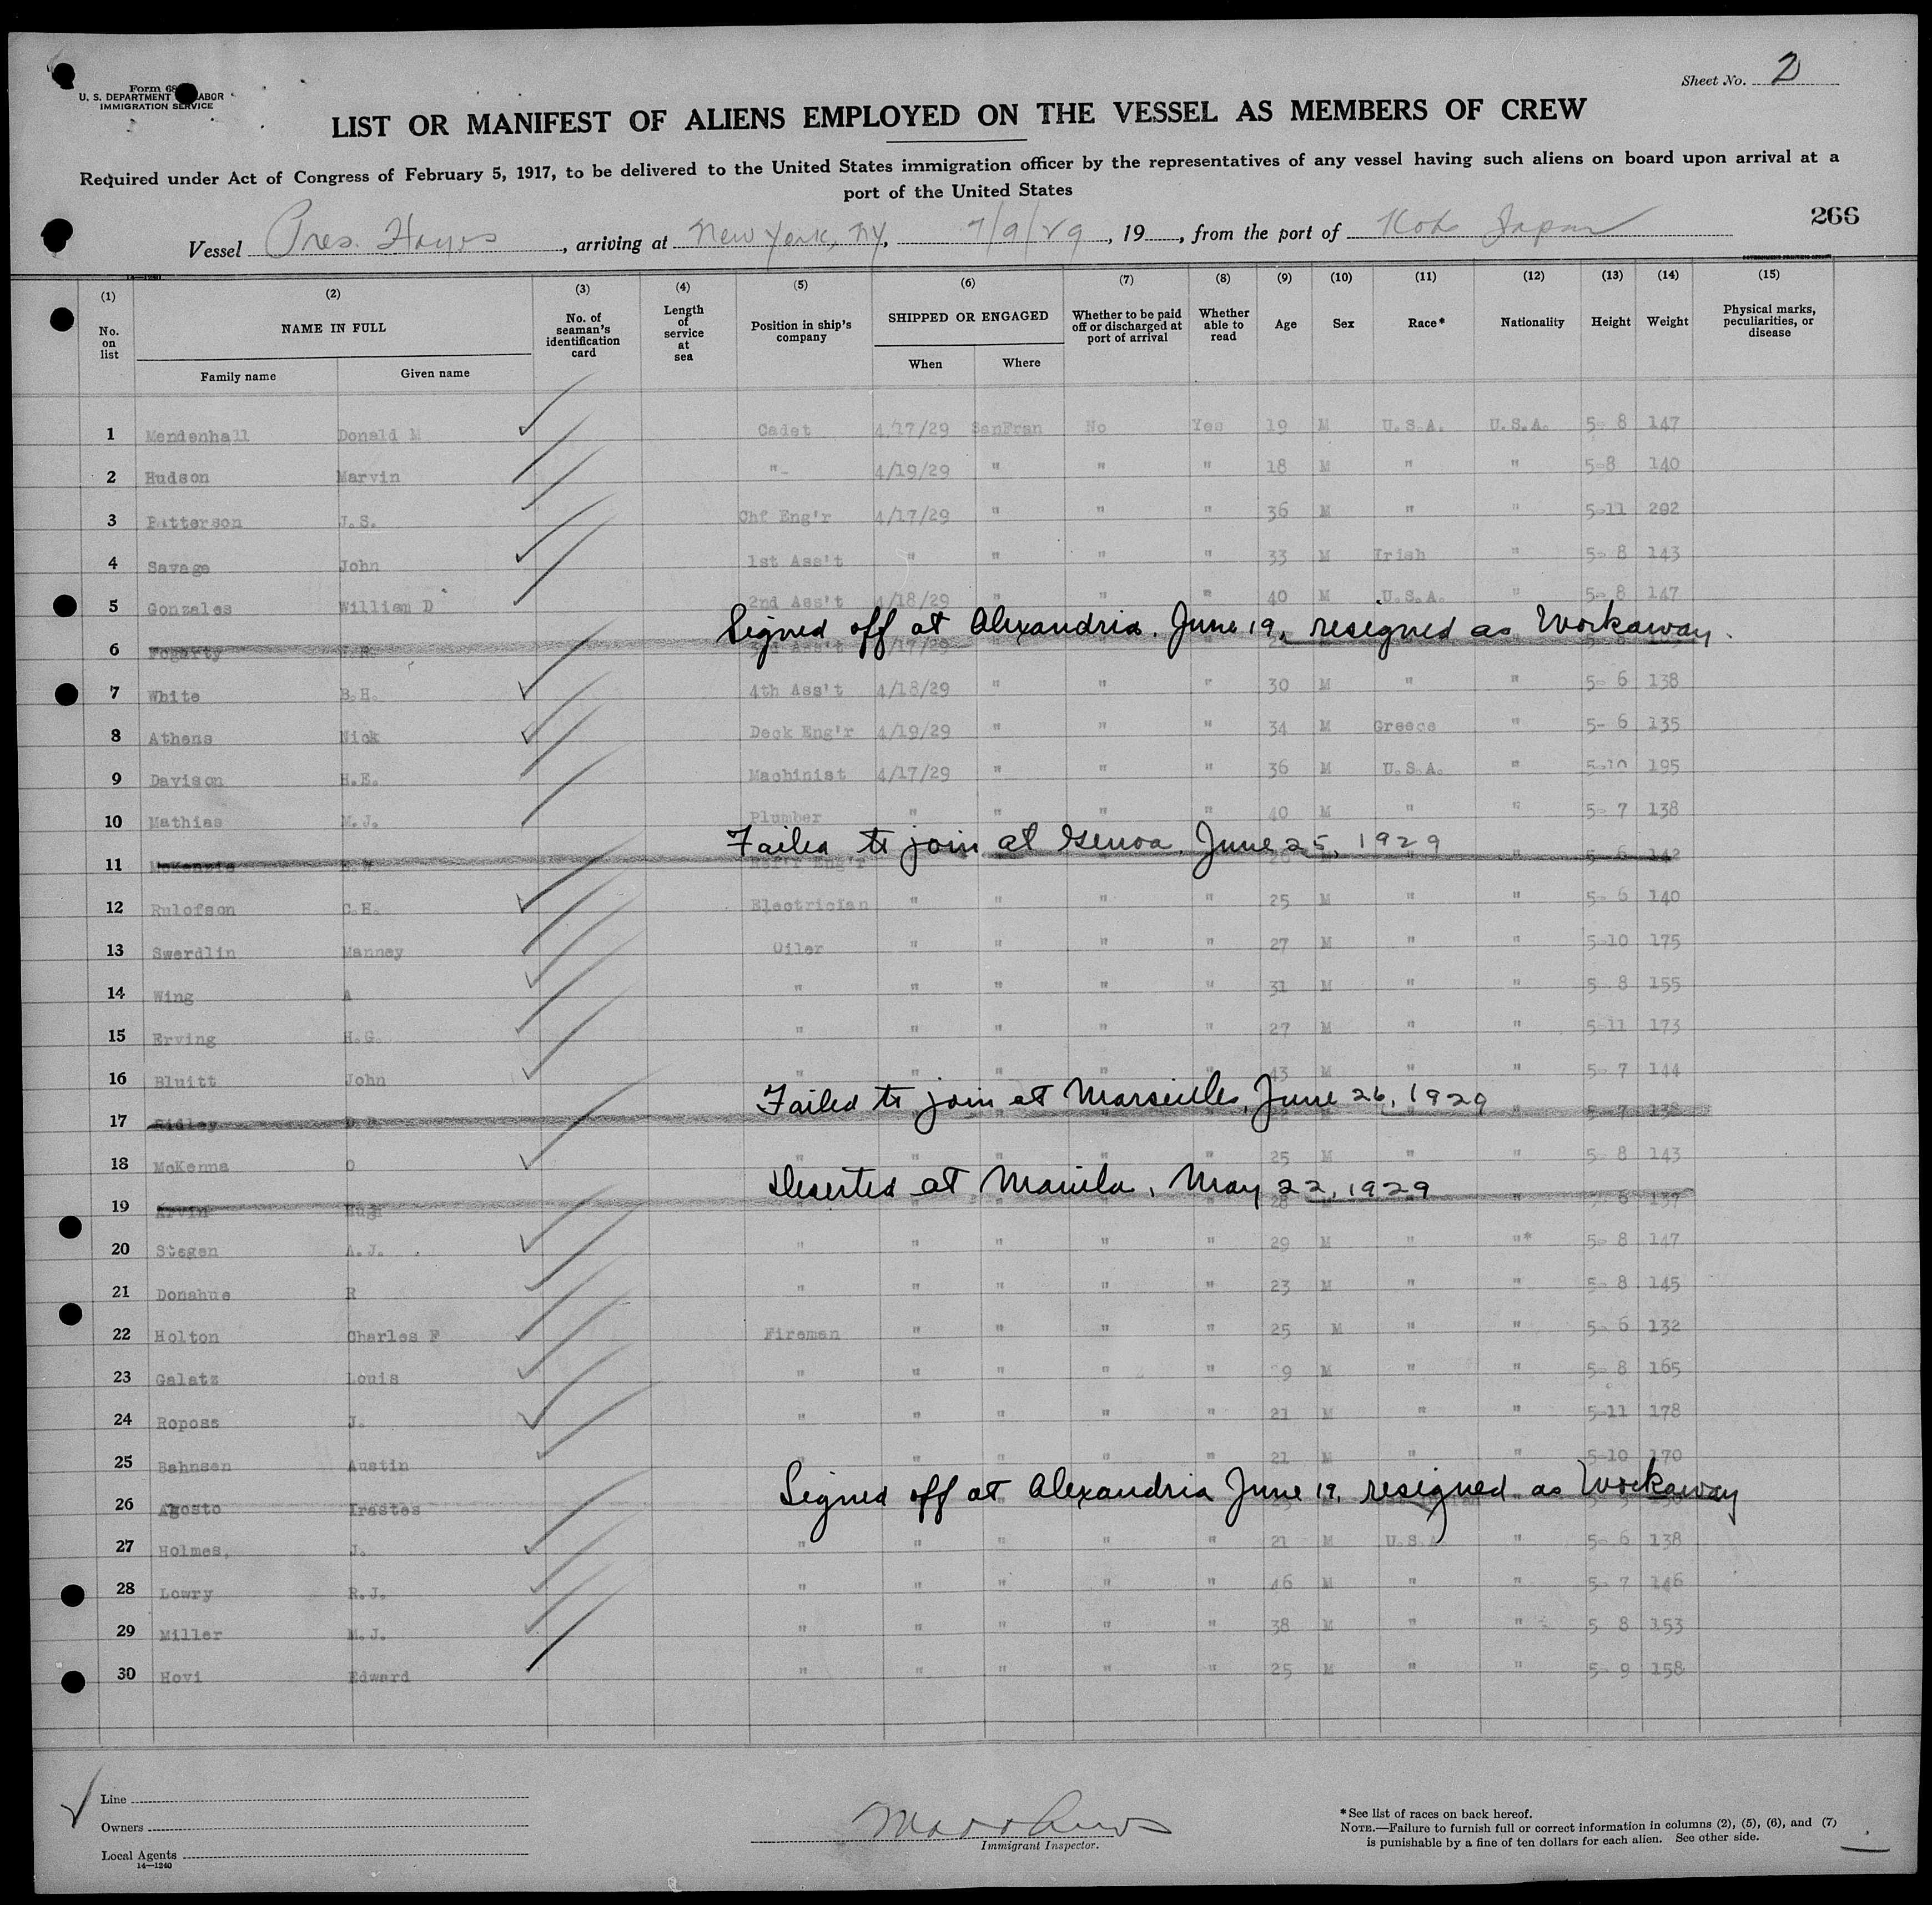 Sheet No. 2
Form 68
U. S. DEPARTMENT LABOR
IMMIGRATION SERVICE
LIST OR MANIFEST OF ALIENS EMPLOYED ON THE VESSEL AS MEMBERS OF CREW
Required under Act of Congress of February 5, 1917, to be delivered to the United States immigration officer by the representatives of any vessel having such aliens on board upon arrival at a
port of the United States
266
Vessel Pres. Hayes, arriving at New York, NY, 7/9/29, 19, from the port of Kobe Japan
(1) (2) (3) (4) (5) (6) (7) (8) (9) (10) (11) (12) (13) (14) (15)
No. on list NAME IN FULL No. of seaman's identification card Length of service at sea Position in ship's company SHIPPED OR ENGAGED Whether to be paid off or discharged at port of arrival Whether able to read Age Sex Race* Nationality Height Weight Physical marks, peculiarities, or disease
Family name Given name When Where
1 Mendenhall Donald M Cadet 4/17/29 SanFran No Yes 19 M U.S.A. U.S.A. 5- 8 147
2 Hudson Marvin "- 4/19/29 " " " 18 M " " 5-8 140
3 Patterson J.S. Chf Eng'r 4/17/29 " " " 36 M " " 5-11 202
4 Savage John 1st Ass't " " " " 33 M Irish " 5- 8 143
5 Gonzales William D 2nd Ass't 4/18/29 " " " 40 M U.S.A. " 5- 8 147
Signed off at Alexandria. June 19, resigned as Workaway.
6 Fogarty 3rd Ass't
7 White B.H. 4th Ass't 4/18/29 " " " 30 M " " 5- 6 138
8 Athens Nick Deck Eng'r 4/19/29 " " " 34 M Greece " 5- 6 135
9 Davison H.E. Machinist 4/17/29 " " " 36 M U.S.A. " 5-10 195
10 Mathias M.J. Plumber " " " " 40 M " " 5- 7 138
Failed to join at Genoa. June 25, 1929
11 McKenzie Eng'r " 5- 6 142
12 Rulofson C.H. Electrician " " " " 25 M " " 5- 6 140
13 Swerdlin Manney Oiler " " " " 27 M " " 5-10 175
14 Wing A " " " " " 31 M " " 5 8 155
15 Erving H.G. " " " " " 27 M " " 5-11 173
16 Bluitt John " " " " " 43 M " " 5- 7 144
Failed to join at Marseilles, June 26, 1929
17 Ridley " 5- 7 138
18 McKenna O " " " " " 25 M " " 5 8 143
Deserted at Manila, May 22, 1929
19 Arvin Hugh 28 " 6 137
20 Stegen A.J. " " " " " 29 M " "* 5- 8 147
21 Donahue R " " " " " 23 M " " 5- 8 145
22 Holton Charles F Fireman " " " " 25 M " " 5- 6 132
23 Galatz Louis " " " " " 9 M " " 5- 8 165
24 Roposs J. " " " " " 21 M " " 5-11 178
25 Bahnsen Austin " " " " " 21 M " " 5-10 170
Signed off at Alexandria June 19, resigned as Workaway
26 Agosto Irastes
27 Holmes, J. " " " " " 21 M U.S.A. " 5- 6 138
28 Lowry R.J. " " " " " 46 M " " 5- 7 146
29 Miller M.J. " " " " " 38 M " " 5 8 153
30 Hovi Edward " " " " " 25 M " " 5- 9 158
Line
Owners
Local Agents
14—1240
Immigrant Inspector.
*See list of races on back hereof.
NOTE.—Failure to furnish full or correct information in columns (2), (5), (6), and (7)
is punishable by a fine of ten dollars for each alien. See other side.